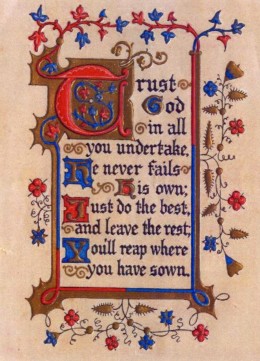 Trust
God
in all
you undertake,
He never fails
His own;
Just do the best,
and leave the rest;
Youll reap where
you have sown.